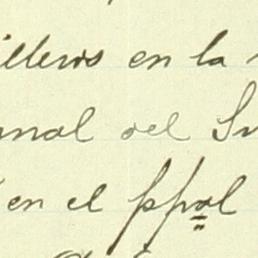 illeros en la
unal del Su
en el ppal